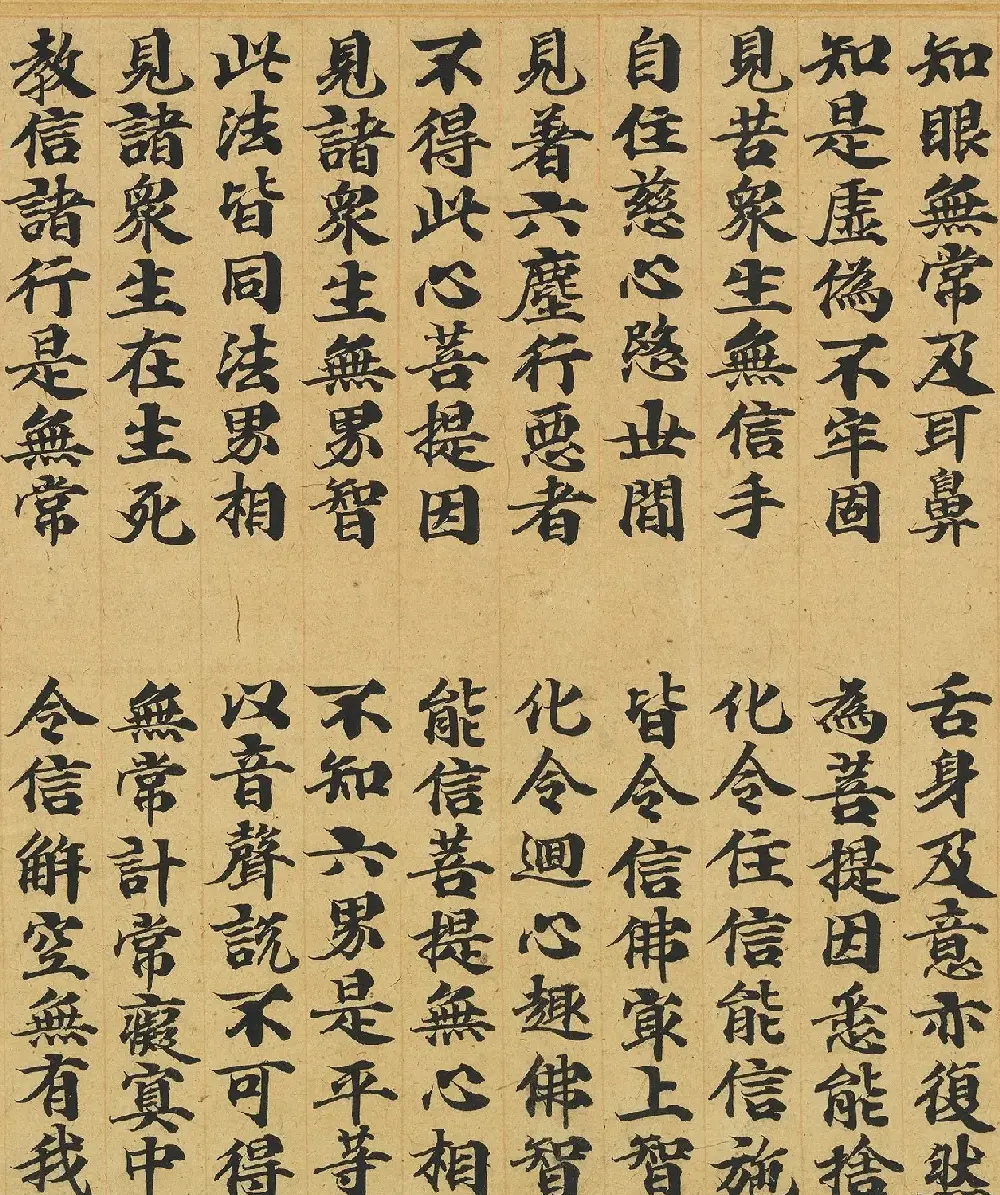 知眼無常及耳鼻　舌身及意亦復然
知是虛偽不牢固　為菩提因悉能捨
見苦衆生無信手　化令住信能信施
自住慈心愍世間　皆令信佛冣上智
見著六塵行惡者　化令迴心趣佛智
不得此心菩提因　能信菩提無心相
見諸衆生無界智　不知六界是平等
此法皆同法界相　以音聲説不可得
見諸衆生在生死　無常計常癡冥中
教信諸行是無常　令信解空無有我